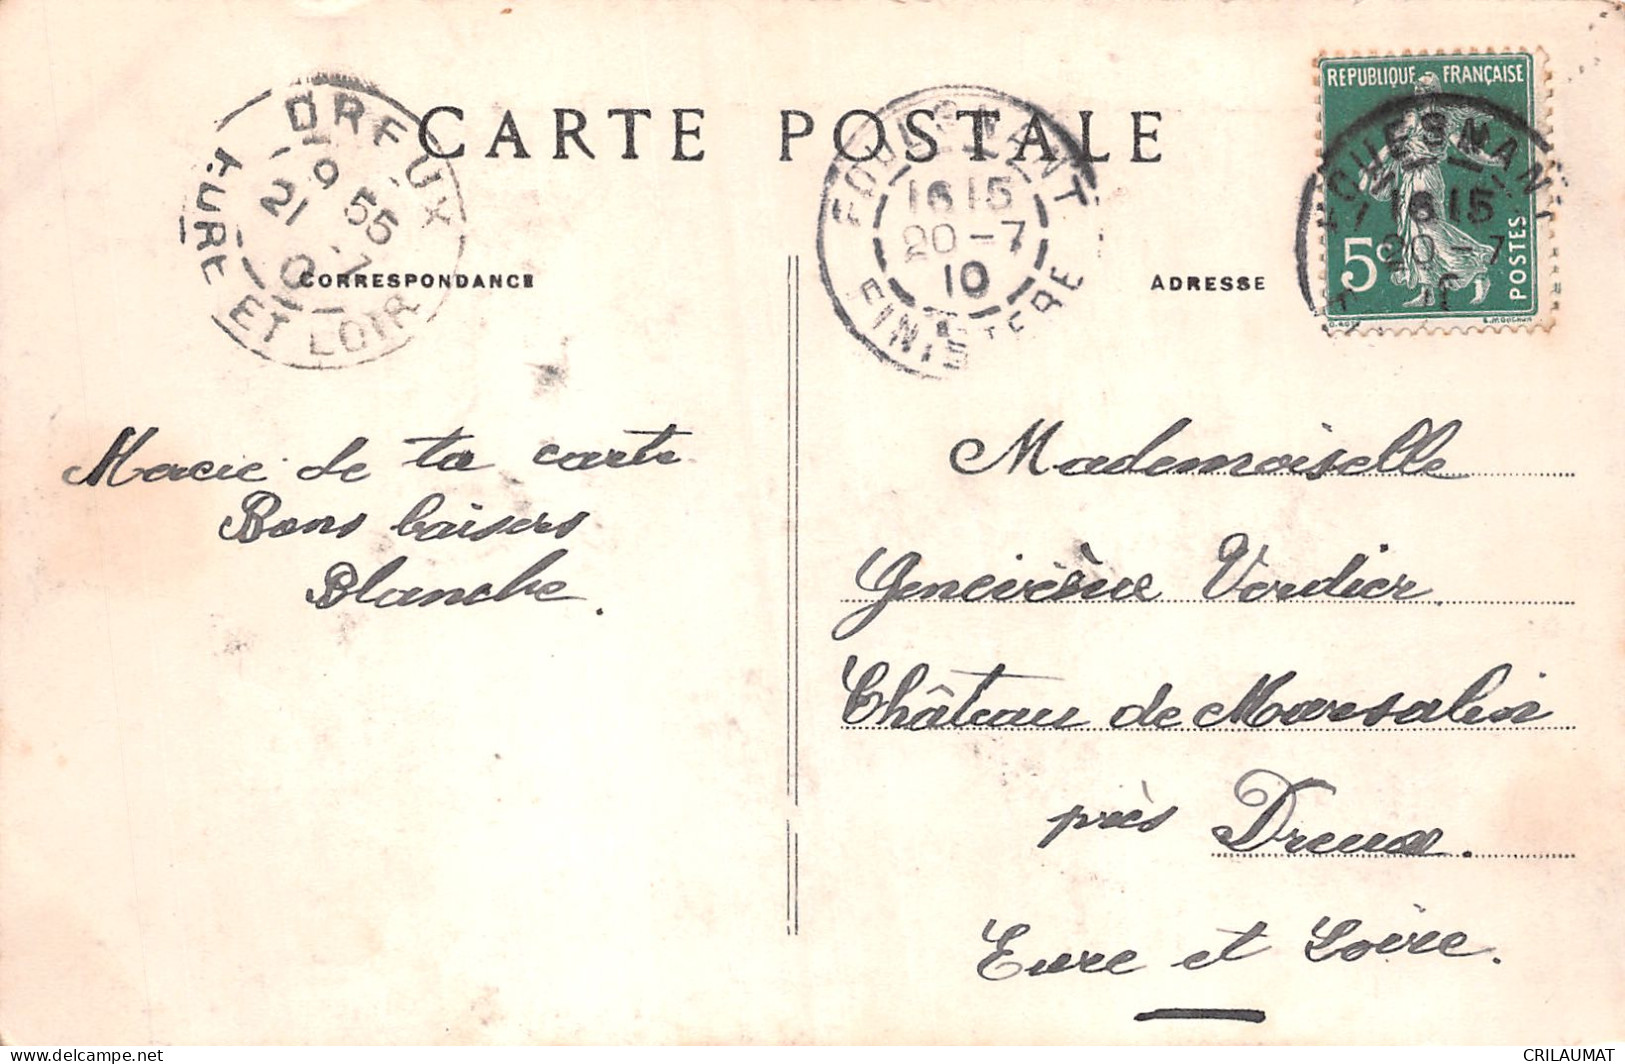 CARTE POSTALE
DREUX
9 55
21 -7
10
EURE ET LOIR
FOUESNANT
16 15
20 -7
10
FINISTERE
REPUBLIQUE FRANÇAISE
FOUESNANT
16 15
20 -7
10
5c
POSTES
CORRESPONDANCE
ADRESSE
Merci de ta carte
Bons baisers
Blanche.
Mademoiselle
Geneviève Verdier
Château de Marsalin
près Dreux.
Eure et Loire.
www.delcampe.net
CRILAUMAT